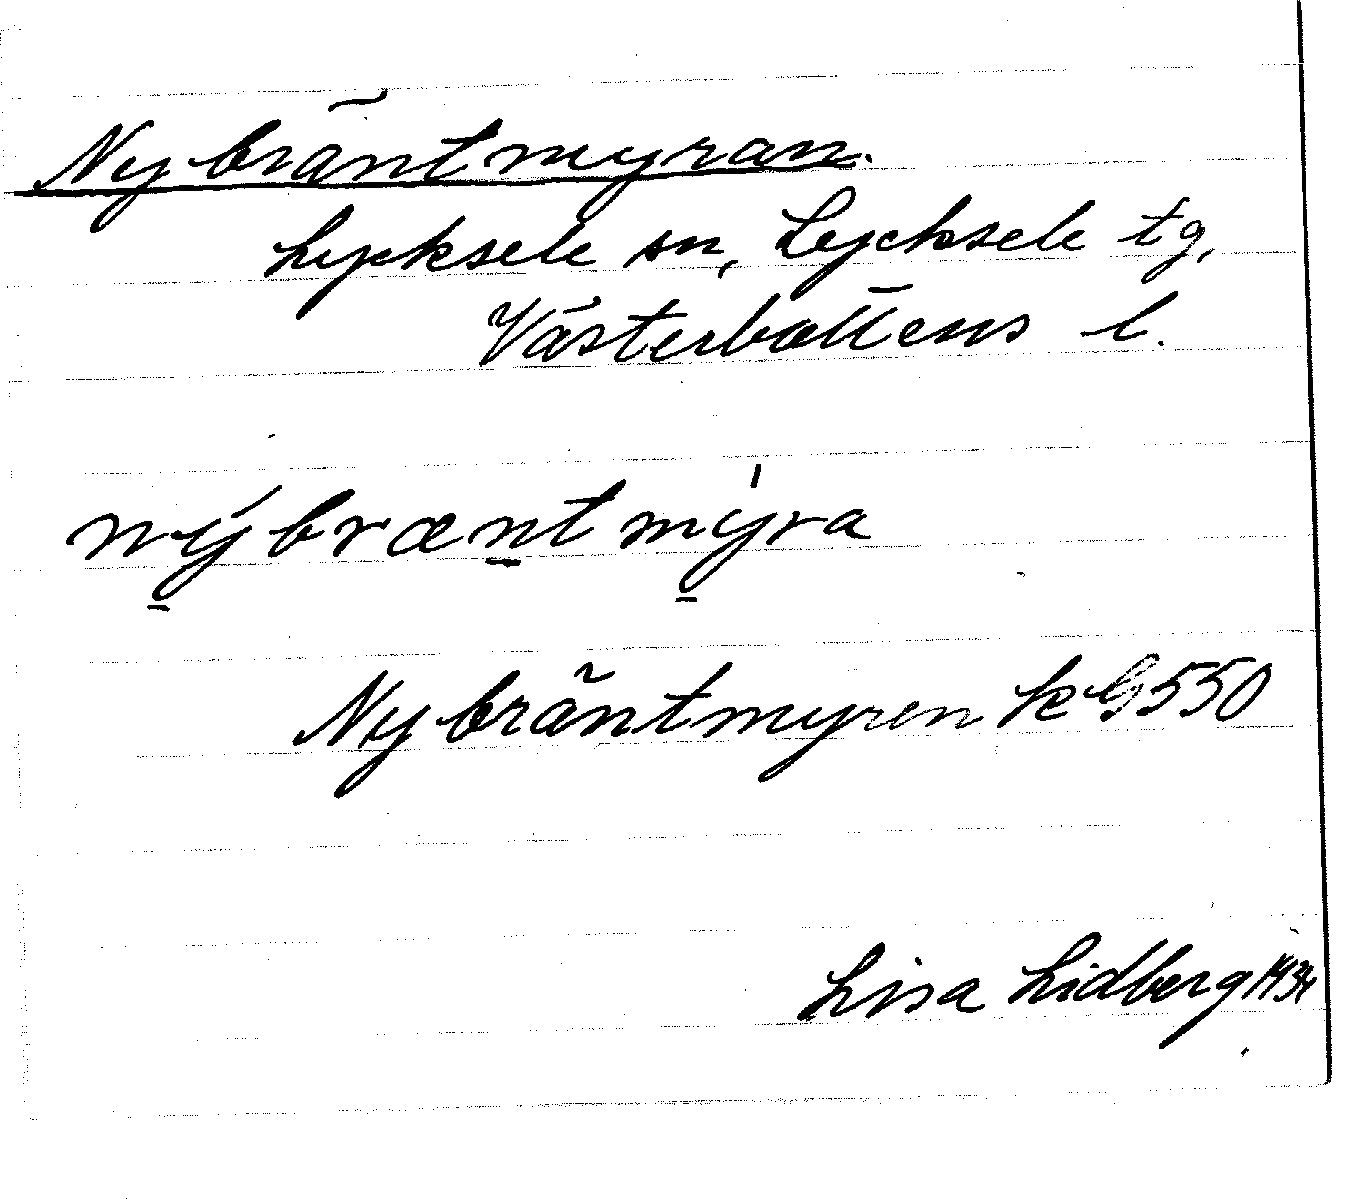 Nybräntmyran.
Lycksele sn, Lycksele tg,
Västerbottens l.
nýbræntmýra
Nybräntmyren k G550
Lisa Lidberg 1934